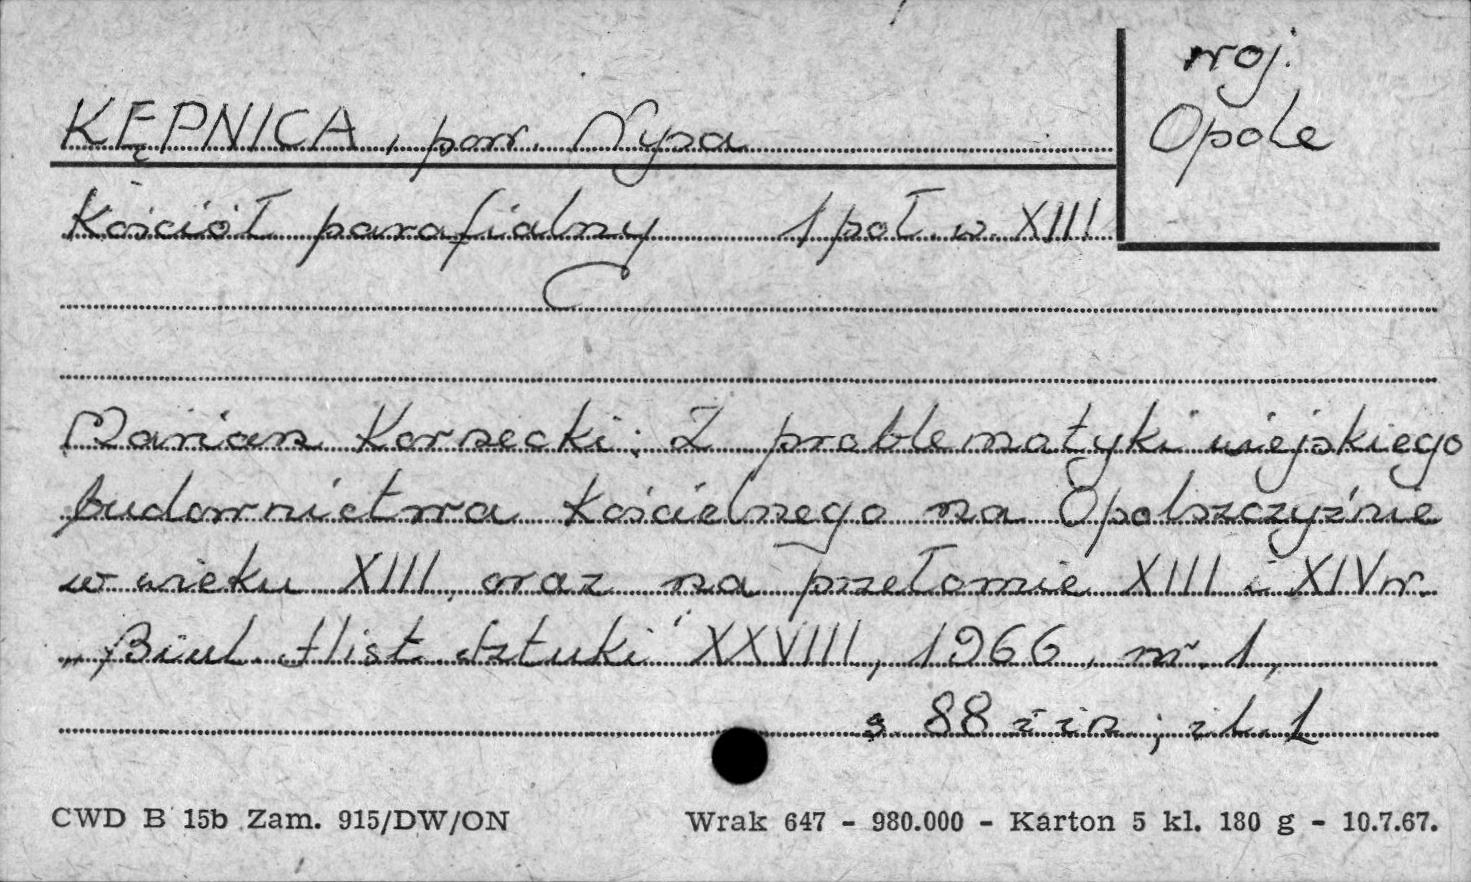 woj.
Opole
KĘPNICA, pow. Nysa
Kościół parafialny 1 poł. w. XIII
Marian Kornecki: Z problematyki wiejskiego
budownictwa kościelnego na Opolszczyźnie
w wieku XIII oraz na przełomie XIII i XIV w.
„Biul. Hist. Sztuki" XXVIII, 1966, nr. 1,
s. 88 i in; il. 1
CWD B 15b Zam. 915/DW/ON Wrak 647 - 980.000 - Karton 5 kl. 180 g - 10.7.67.